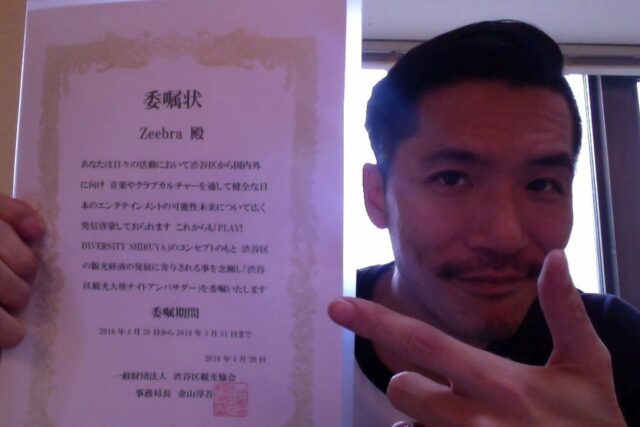 委嘱状
Zeebra 殿
あなたは日々の活動において渋谷区から国内外
に向け 音楽やクラブカルチャーを通して健全な日
本のエンタテインメントの可能性未来について広く
発信啓蒙しておられます これからも「PLAY!
DIVERSITY SHIBUYA」のコンセプトのもと 渋谷区
の観光経済の発展に寄与される事を念願し「渋谷
区観光大使ナイトアンバサダー」を委嘱いたします
委嘱期間
2016年4月20日から2018年3月31日まで
2016年4月20日
一般財団法人 渋谷区観光協会
事務局長 金山淳吾